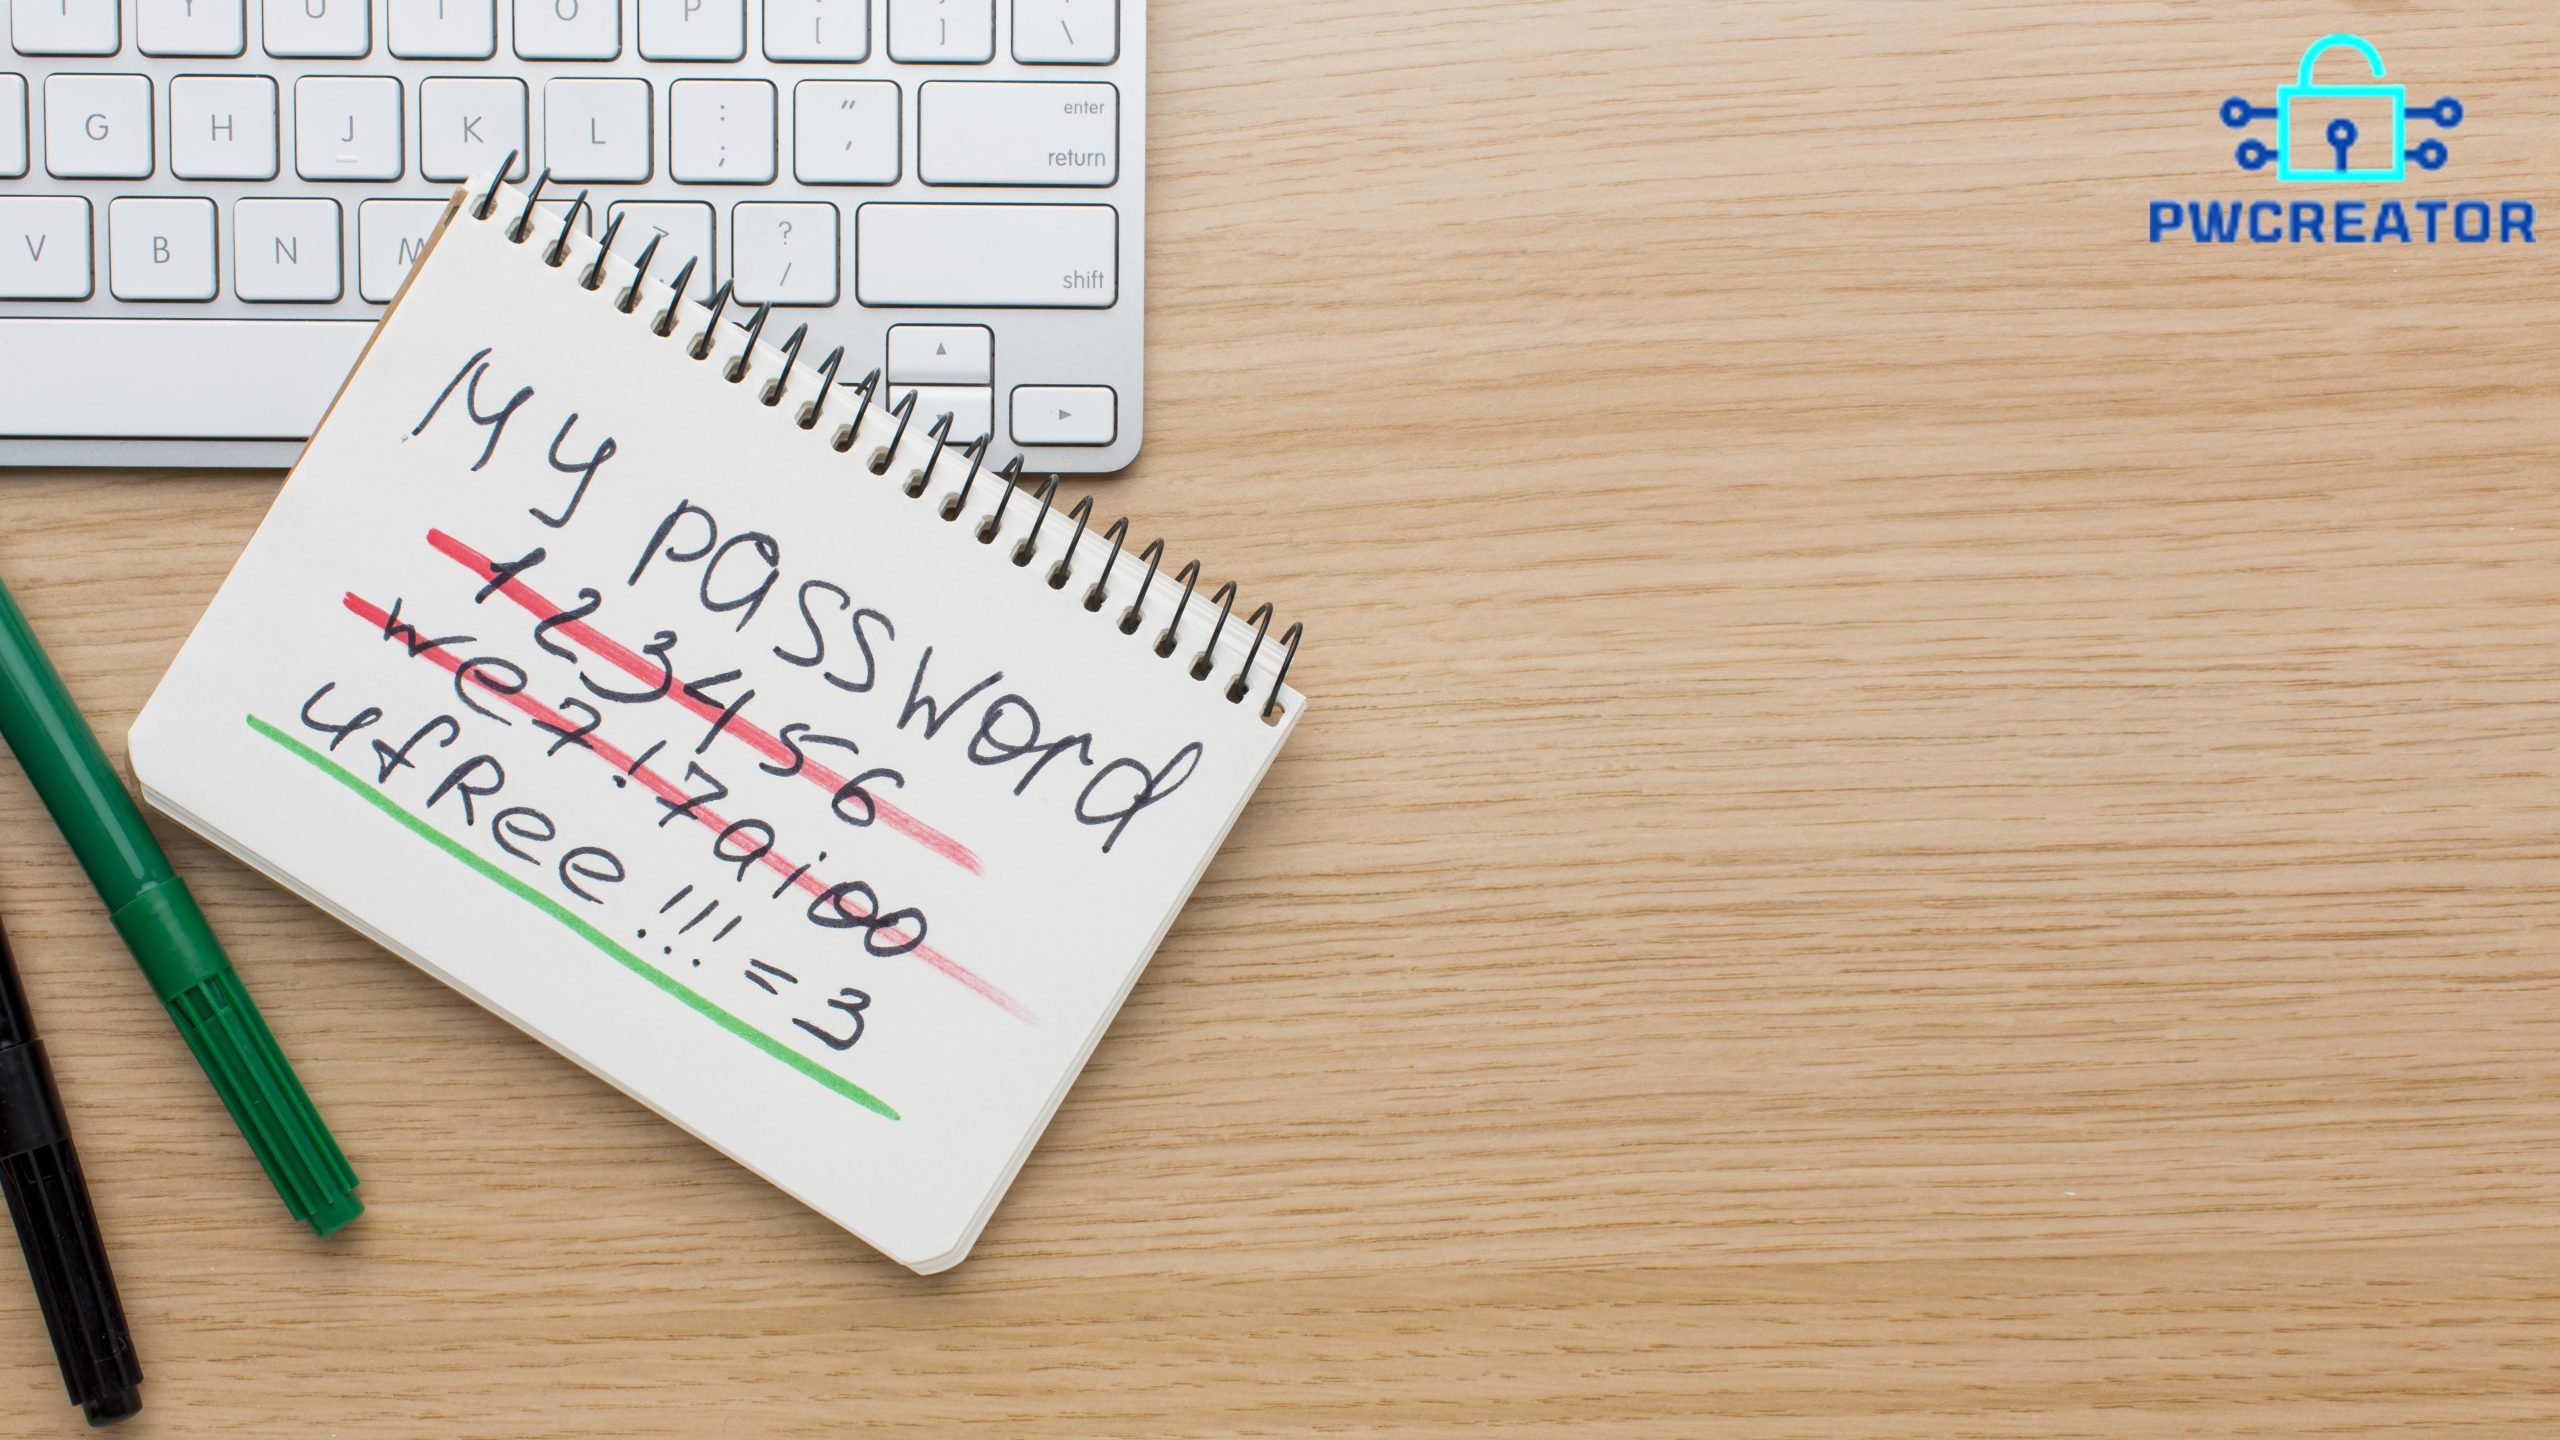 Y U I O P [ ]
\
G H J K L : ; " ' enter
return
V B N M ? /
shift
PWCREATOR
My password
123456
we7!7aioo
4fRee!!!=3